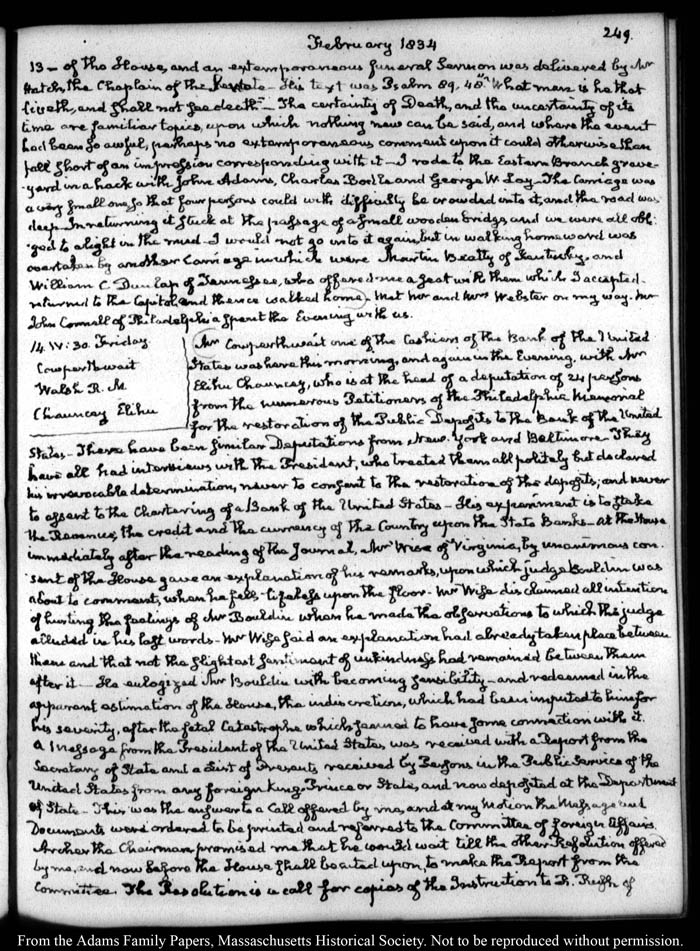 249.
February 1834
13 - of the House, and an extemporaneous funeral Sermon was delivered by Mr
Hatch, the Chaplain of the Senate - His text was Psalm 89. 48. "What man is he that
liveth, and shall not see death" - The certainty of Death, and the uncertainty of its
time are familiar topics, upon which nothing new can be said, and where the event
had been so awful, perhaps no extemporaneous comment upon it could otherwise than
fall short of an impression corresponding with it - I rode to the Eastern Branch grave-
yard in a hack with John Adams, Charles and George W. Lay - The Carriage was
a very small one, so that four persons could with difficulty be crowded into it, and the road was
deep - In returning it stuck at the passage of a small wooden bridge, and we were all obli-
ged to alight in the mud - I would not go into it again but in walking homeward was
overtaken by another Carriage in which were Martin Beatty of Kentucky, and
William C. Dunlap of Tennessee, who offered me a seat with them which I accepted -
returned to the Capitol, and thence walked home - Met Mr and Mrs Webster on my way. Mr
John Connell of Philadelphia spent the Evening with us.
14. IV: 30. Friday
Cowperthwait
Walsh R. M
Chauncey Elihu
Mr Cowperthwait one of the Cashiers of the Bank of the United
States was here this morning, and again in the Evening, with Mr
Elihu Chauncey, who is at the head of a deputation of 24 persons
from the numerous Petitioners of the Philadelphia Memorial
for the restoration of the Public Deposits to the Bank of the United
States - There have been similar Deputations from New-York and Baltimore - They
have all had interviews with the President, who treated them all politely but declared
his irrevocable determination, never to consent to the restoration of the deposits; and never
to assent to the Chartering of a Bank of the United States - His experiment is to stake
the Revenue, the credit and the currency of the Country upon the State Banks - At the House
immediately after the reading of the Journal, Mr Wise of Virginia, by unanimous con-
sent of the House gave an explanation of his remarks, upon which judge Bouldin was
about to comment, when he fell lifeless upon the floor - Mr Wise disclaimed all intention
of hurting the feelings of Mr Bouldin when he made the observations to which the judge
alluded in his last words - Mr Wise said an explanation had already taken place between
them and that not the slightest sentiment of unkindness had remained between them
after it - He eulogized Mr Bouldin with becoming sensibility - and redeemed in the
apparent estimation of the House, the indiscretion, which had been imputed to him for
his severity, after the fatal Catastrophe which seemed to have some connection with it.
A Message from the President of the United States was received with a Report from the
Secretary of State and a List of Presents received by Persons in the Public Service of the
United States from any foreign King, Prince or State, and now deposited at the Department
of State - This was the answer to a Call offered by me, and at my Motion the Message and
Documents were ordered to be printed and referred to the Committee of foreign Affairs.
Archer the Chairman promised me that he would wait till the other Resolution offered
by me, and now before the House shall be acted upon, to make the Report from the
Committee. The Resolution is a call for copies of the Instruction to R. Rush of
From the Adams Family Papers, Massachusetts Historical Society. Not to be reproduced without permission